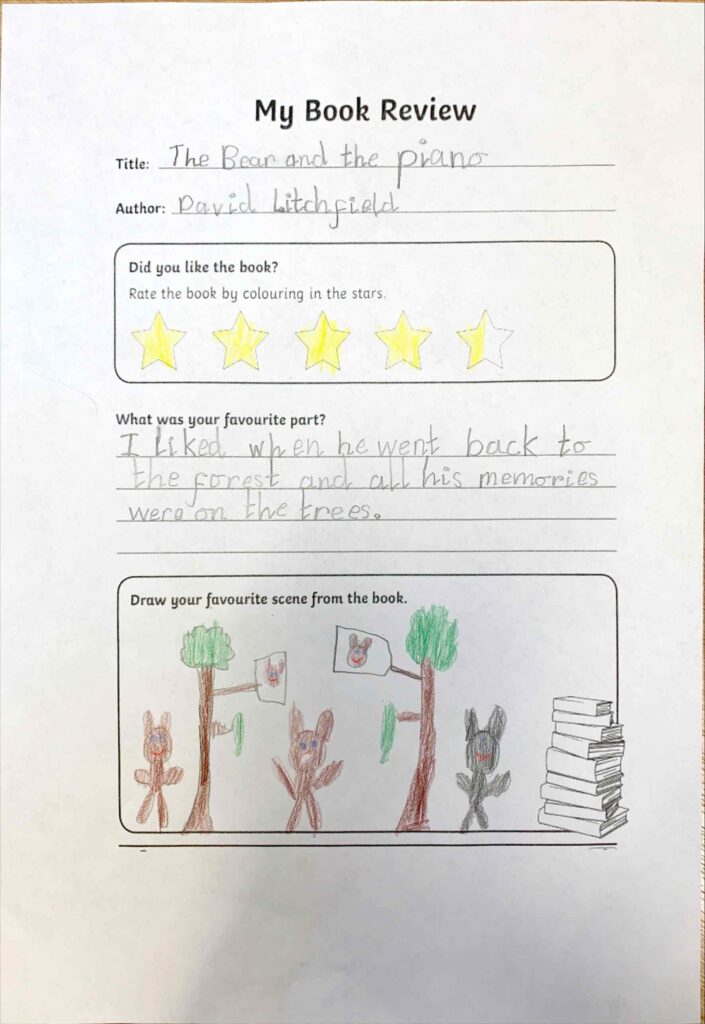 My Book Review
Title: The Bear and the piano
Author: David Litchfield
Did you like the book?
Rate the book by colouring in the stars.
What was your favourite part?
I liked when he went back to
the forest and all his memories
were on the trees.
Draw your favourite scene from the book.